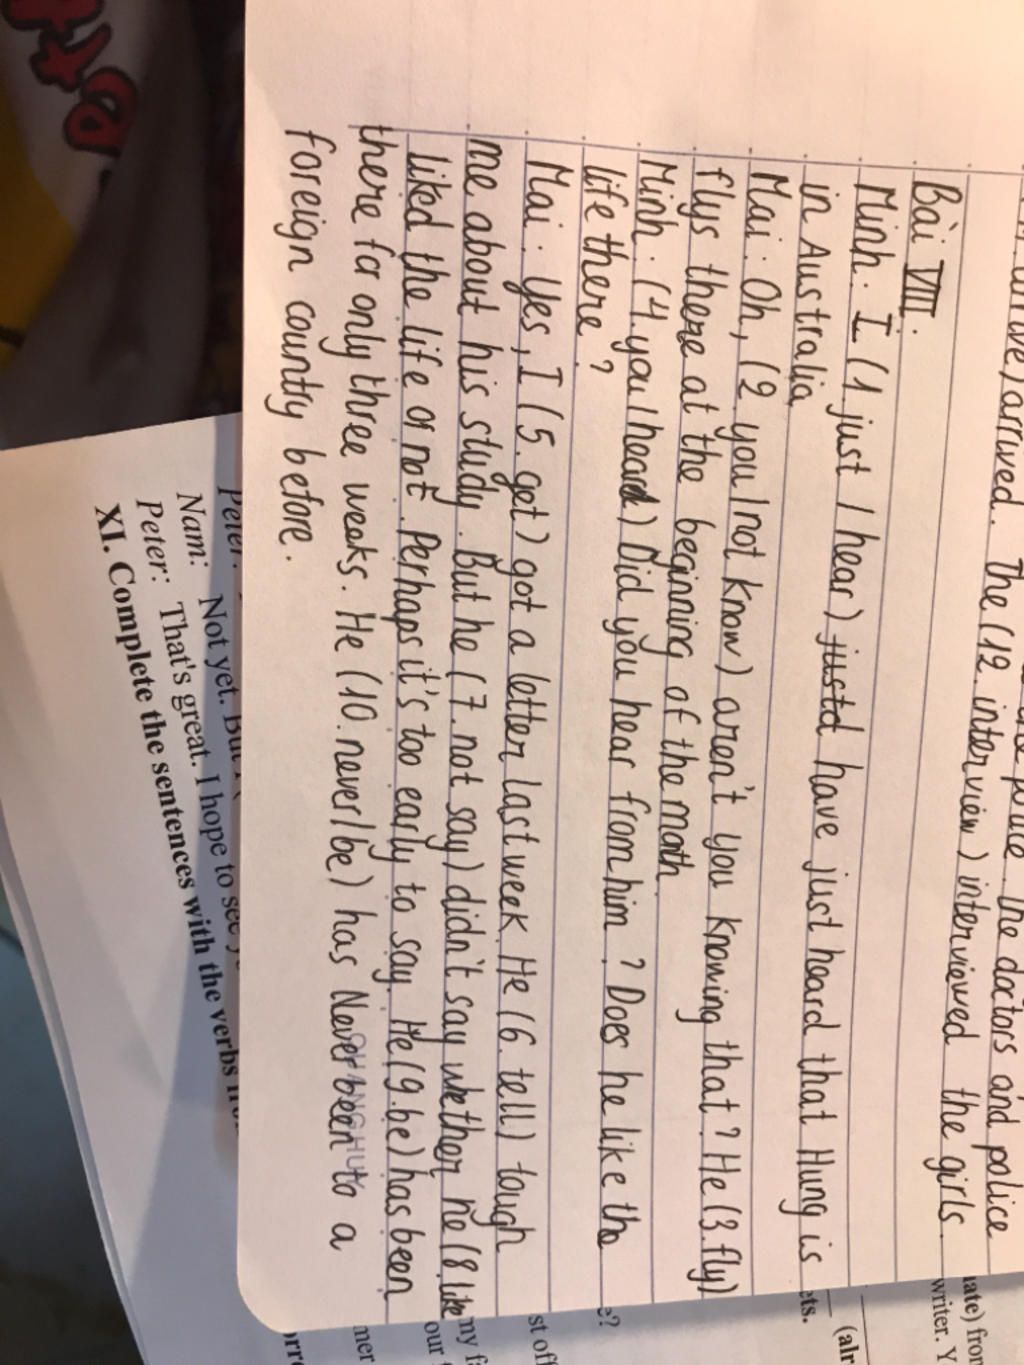 arrived. The (12. interview) interviewed the girls.
the doctors and police
Bài VIII.
Minh: I (1. just / hear) justd have just heard that Hung is
in Australia
Mai: Oh, (2. you / not know) aren't you knowing that? He (3. fly)
flys there at the beginning of the month.
Minh: (4. you / heard) Did you hear from him? Does he like the
life there?
Mai: Yes, I (5. get) got a letter last week. He (6. tell) tough
me about his study. But he (7. not say) didn't say whether he (8. like
liked the life or not. Perhaps it's too early to say. He (9. be) has been
there for only three weaks. He (10. never/be) has Never been to a
foreign country before.
Nam: Not yet. But I
Peter: That's great. I hope to see
XI. Complete the sentences with the verbs
iate) fror
writer. Y
(alr
ets.
e?
st off
my f
our
mer
orre